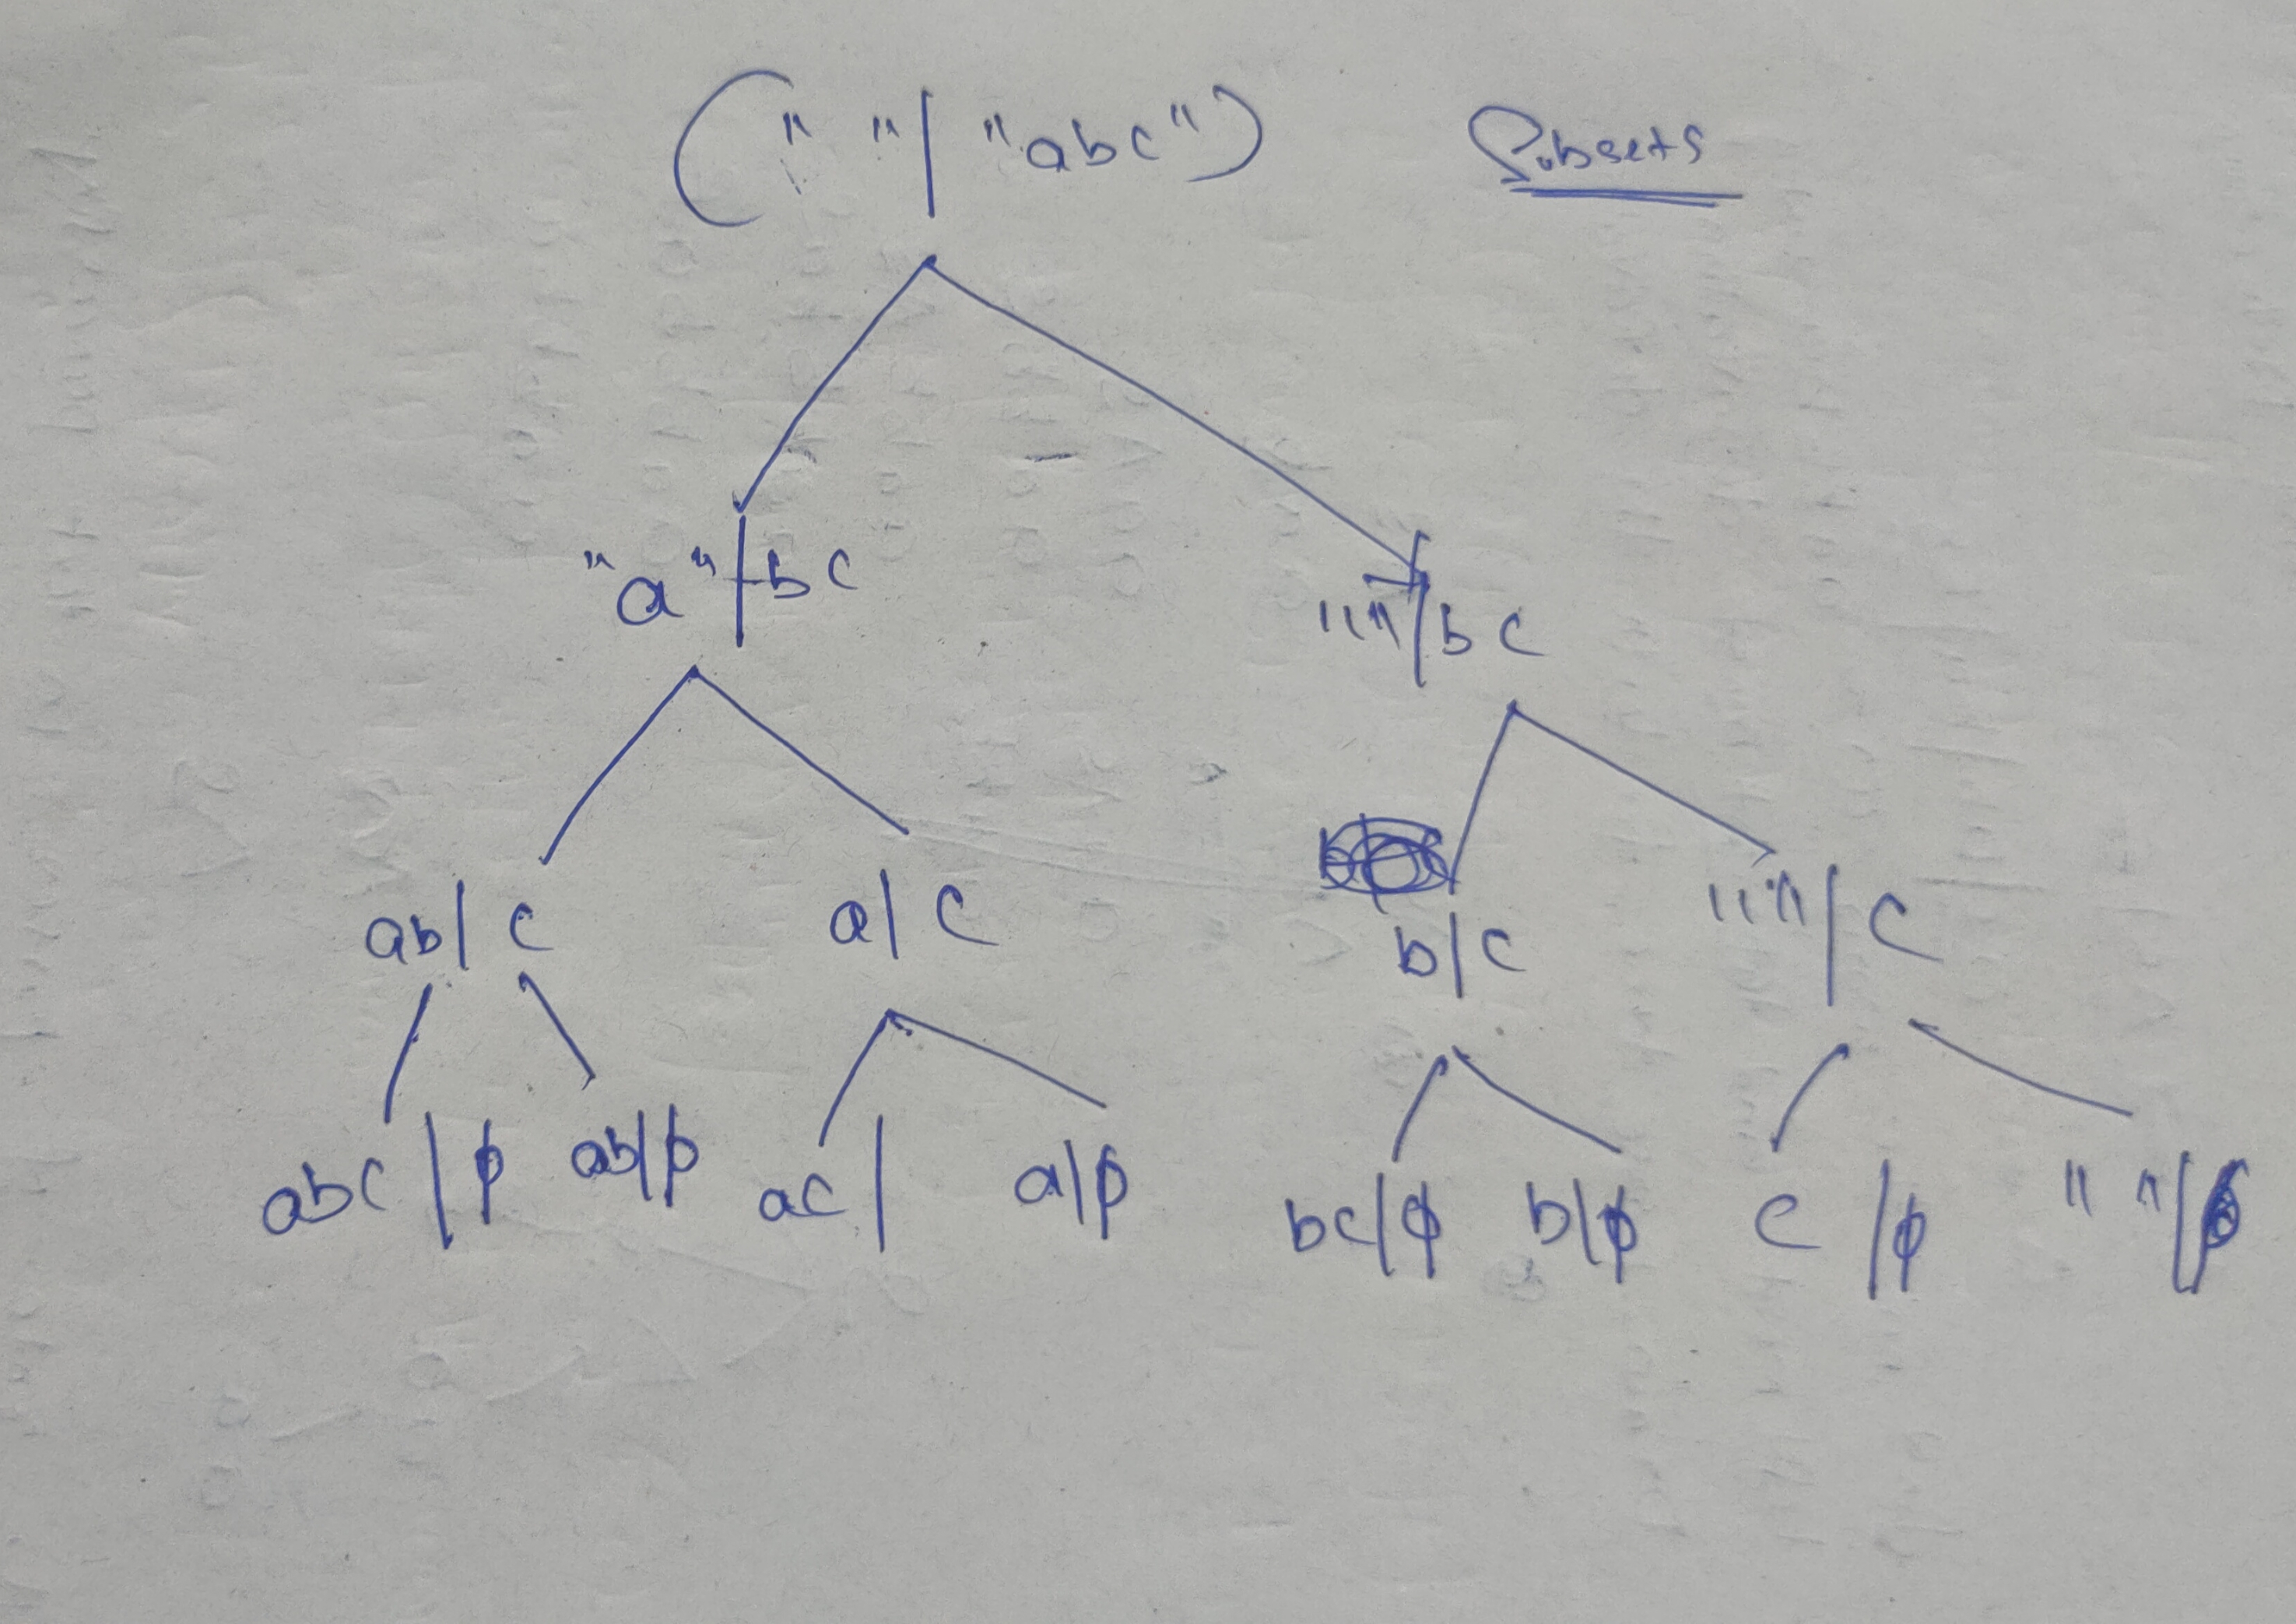 (" " | "abc") Subsets
"a" | bc
"" | bc
ab | c a | c
b | c "" | c
abc | ϕ ab | ϕ ac | a | ϕ bc | ϕ b | ϕ c | ϕ " " | ϕ